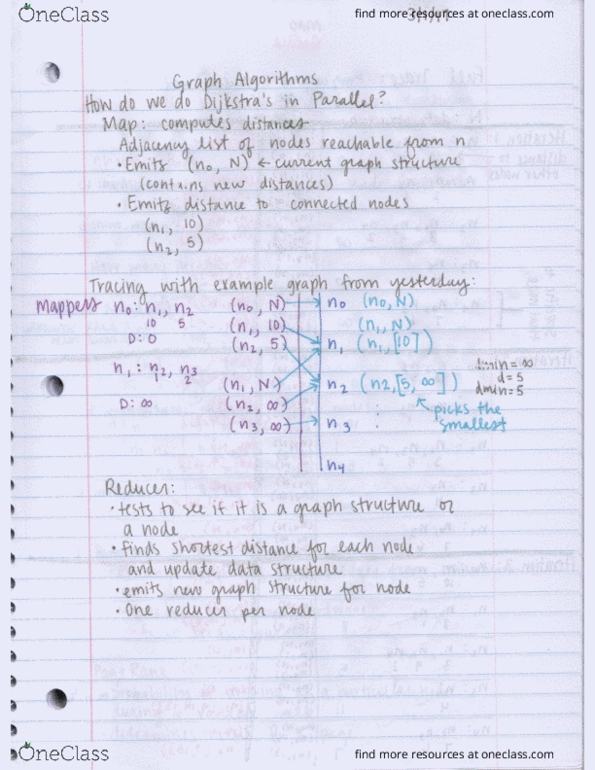 OneClass
find more resources at oneclass.com
Graph Algorithms
How do we do Dijkstra's in Parallel?
Map: computes distances
Adjacency list of nodes reachable from n
• Emits (n0, N) ← current graph structure
(contains new distances)
• Emits distance to connected nodes
(n1, 10)
(n2, 5)
Tracing with example graph from yesterday:
Mappers n0: n1, n2 (n0, N) n0 (n0, N)
10 5 (n1, 10) (n1, N)
D: 0 (n2, 5) n1 (n1, [10])
n1: n2, n3 (n1, N) n2 (n2, [5, ∞]) dmin = ∞
1 2 d = 5
D: ∞ (n2, ∞) dmin = 5
(n3, ∞) n3 : picks the
smallest
n4
Reducer:
• tests to see if it is a graph structure or
a node
• finds shortest distance for each node
and update data structure
• emits new graph structure for node
• One reducer per node
OneClass
find more resources at oneclass.com